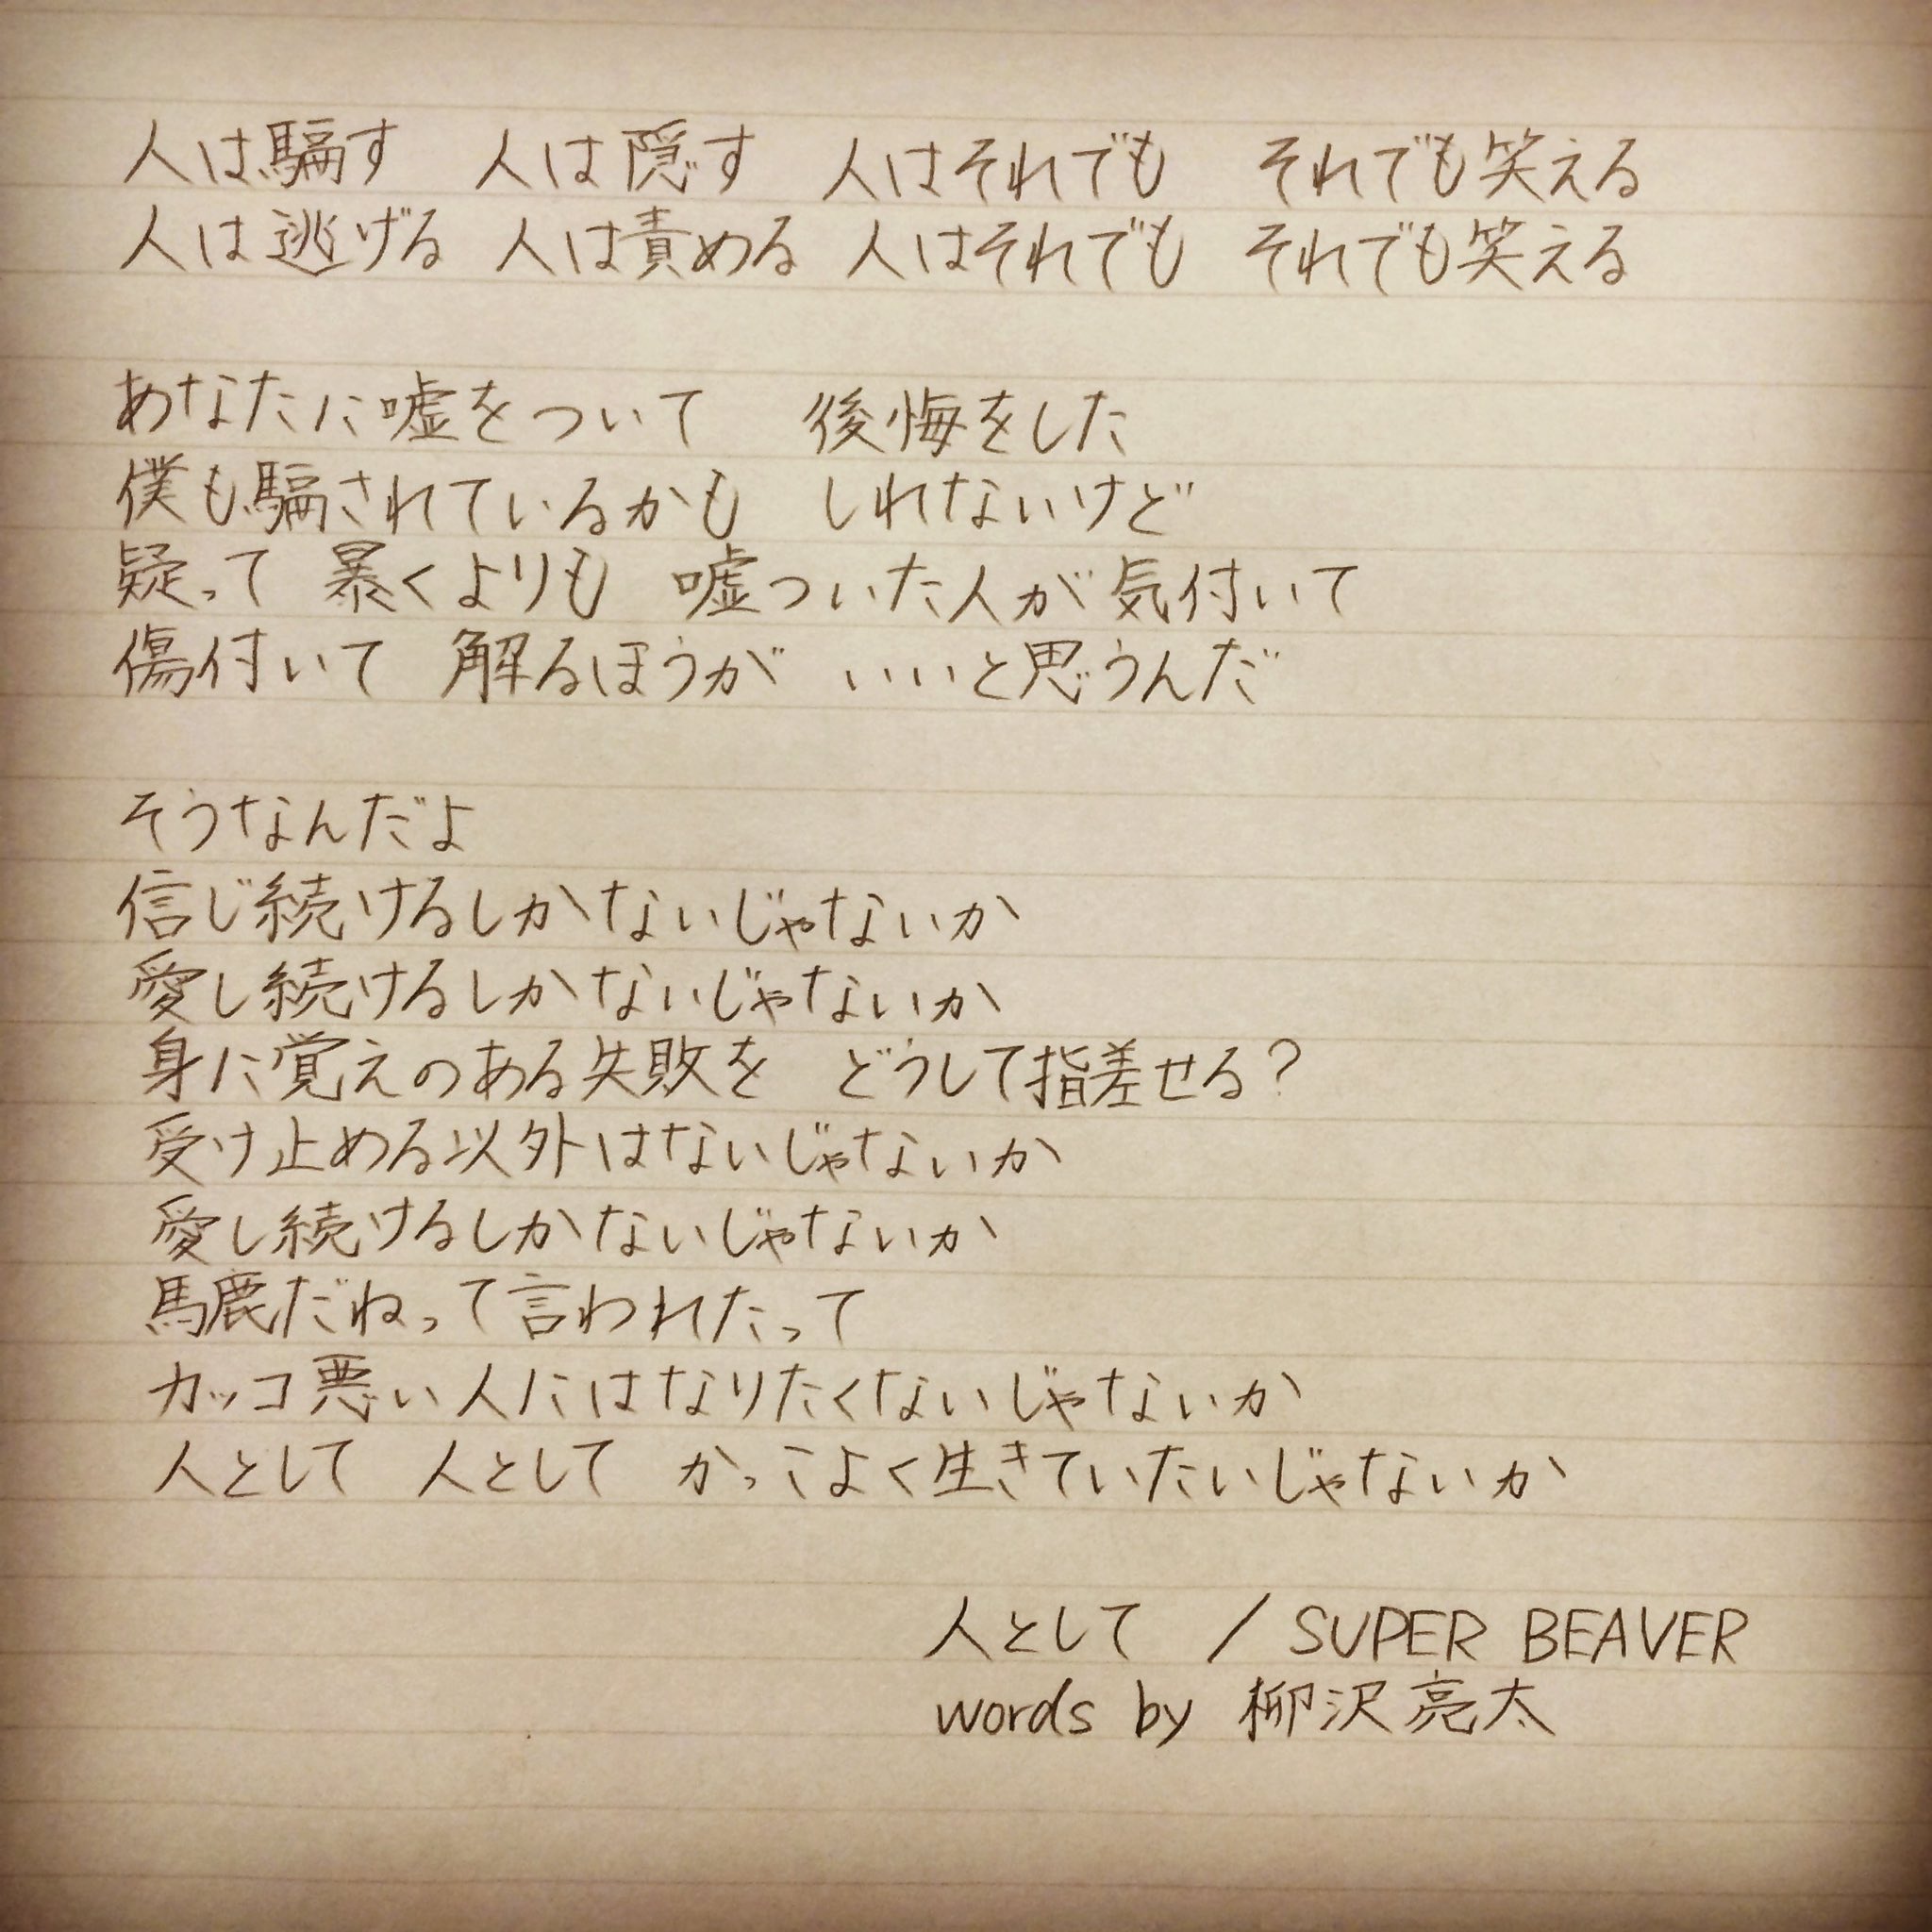 人は騙す 人は隠す 人はそれでも それでも笑える
人は逃げる 人は責める 人はそれでも それでも笑える
あなたに嘘をついて 後悔をした
僕も騙されているかも しれないけど
疑って 暴くよりも 嘘ついた人が気付いて
傷付いて 解るほうが いいと思うんだ
そうなんだよ
信じ続けるしかないじゃないか
愛し続けるしかないじゃないか
身に覚えのある失敗を どうして指差せる?
受け止める以外はないじゃないか
愛し続けるしかないじゃないか
馬鹿だねって言われたって
カッコ悪い人にはなりたくないじゃないか
人として 人として かっこよく生きていたいじゃないか
人として / SUPER BEAVER
words by 柳沢亮太